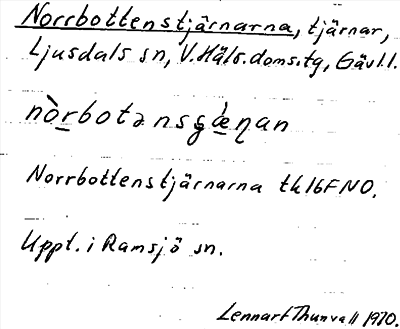 Norrbottenstjärnarna, tjärnar,
Ljusdals sn, V. Häls. doms.tg, Gävl.l.
nòrbotənsʂæ̀ɳan
Norrbottenstjärnarna tk 16F NO.
Uppt. i Ramsjö sn.
Lennart Thunvall 1970.